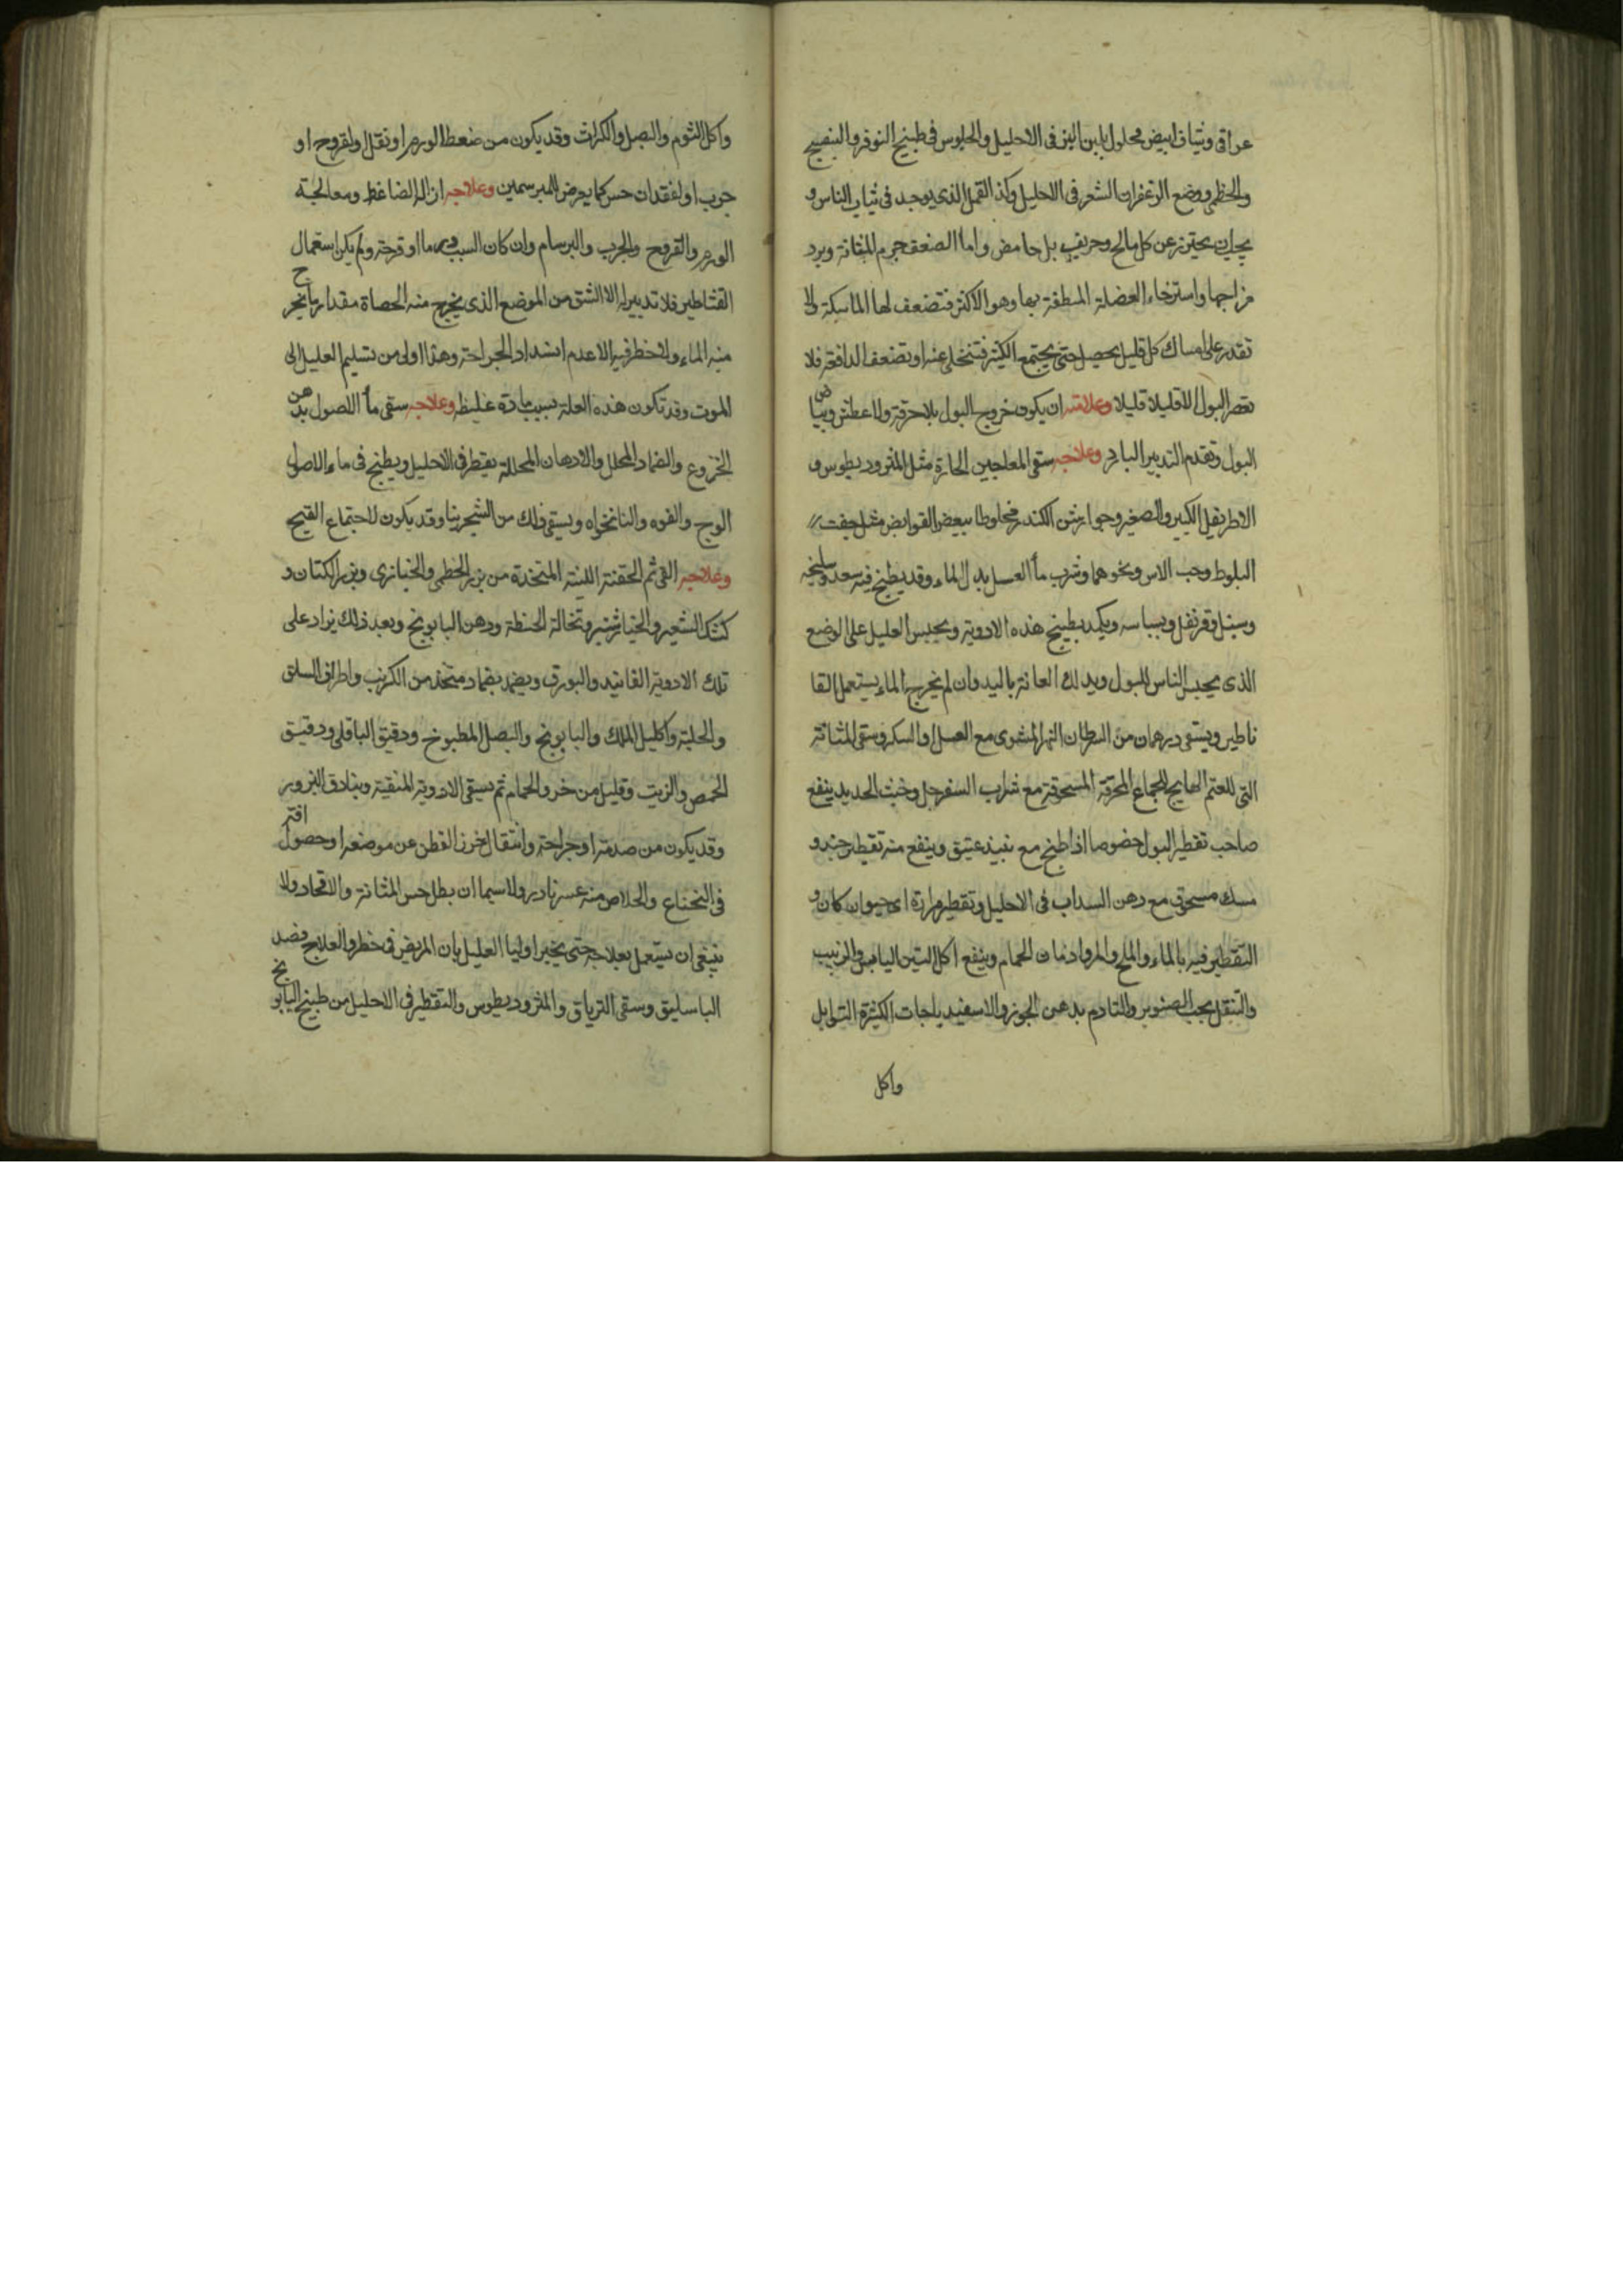 عراقى وشياف ابيض محلول بلبن اتن فى الاحليل والجلوس فى طبيخ النوفر والبنفسج
والخطمى ووضع الزعفران الشعر فى الاحليل وكذا القمل الذى يوجد فى ثياب الناس و
يجب ان يحترز عن كل مالح وحريف بل حامض واما لضعف جرم المثانة وبرد
مزاجها واسترخاء العضلة المطيفة بها وهو الاكثر فتضعف لها الماسكة ولا
تقدر على امساك كل قليل يحصل حتى يجتمع الكثير فتخلى عنه او تضعف الدافعة فلا
تعصر البول الا قليلا قليلا وعلامته ان يكون خروج البول بلا حرقة ولا عطش وبياض
البول وتقدم التدبير البارد وعلاجه سقى المعاجين الحارة مثل المثروديطوس و
الاطريفل الكبير والصغير وجوارشن الكندر مخلوطا ببعض القوابض مثل جفت
البلوط وحب الاس ونحوهما وشرب ماء العسل بدل الماء وقد يطبخ فيه سعد وسليخه
وسنبل وقرنفل وبسباسه ويكمد بطبيخ هذه الادوية ويجلس العليل على الوضع
الذى يجلس الناس للبول ويدلك العانة باليد وان لم يخرج الماء يستعمل القا
ناطير ويسقى درهمان من السرطان النهرى المشوى مع العسل او السكر وسقى المثانة
التى للغنم الهايج للجماع المحرقة المسحوقة مع شراب السفرجل وخبث الحديد ينفع
صاحب تقطير البول خصوصا اذا طبخ مع نبيذ عتيق وينفع منه تقطير جند و
مسك مسحوق مع دهن السداب فى الاحليل وتقطير مرارة اى حيوان كان و
التقطير فيه بالماء والملح والمر وادمان الحمام وينفع اكل التين اليابس والزبيب
والتنقل بحب الصنوبر والتادم بدهن الجوز والاسفيدباجات الكثيرة التوابل
واكل
واكل الثوم والبصل والكراث وقد يكون من ضغط الورم او ثقل او لقروح او
جرب او لفقدان حس كما يعرض للمبرسمين وعلاجه ازالة الضاغط ومعالجة
الورم والقروح والجرب والبرسام وان كان السبب ورما او قرحة ولم يكن استعمال
القثاطير فلا تدبير له الا الشق من الموضع الذى يخرج منه الحصاة مقدار ما يخرج
منه الماء ولا خطر فيه الا عدم انسداد الجراحة وهذا اولى من تسليم العليل الى
الموت وقد تكون هذه العلة بسبب مادة غليظه وعلاجه سقى ماء الاصول بدهن
الخروع والضماد المحلل والادهان المحللة يقطر فى الاحليل ويطبخ فى ماء الاصول
الوج والفوه والنانخواه ويسقى ذلك من الشجرينا وقد يكون لاجتماع القيح
وعلاجه القى ثم الحقنة اللينة المتخذة من بزر الخطمى والخبازى وبزر الكتان و
كشك الشعير والخيارشنبر ونخالة الحنطة ودهن البابونج وبعد ذلك يزاد على
تلك الادوية الفانيد والبورق ويضمد بضماد متخذ من الكرنب واطراف السلق
والحلبة واكليل الملك والبابونج والبصل المطبوخ ودقيق الباقلى ودقيق
الحمص والزيت وقليل من خرو الحمام ثم يسقى الادوية المنقية وبنادق البزور
وقد يكون من صدمة او جراحة وانتقال لخرز القطن عن موضعه او حصول افة
فى النخاع والخلاص منه عسر نادر ولا سيما ان بطل حس المثانة والاقحاد ولا
ينبغى ان يستعمل بعلاجه حتى يخبر اوليا العليل بان المريض فى خطر والعلاج فصد
الباسليق وسقى الترياق والمثروديطوس والتقطير فى الاحليل من طبيخ البابونج